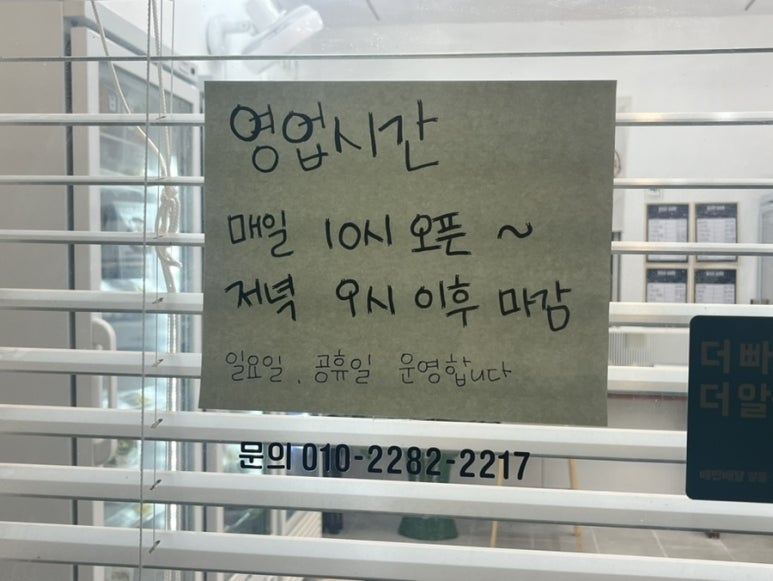 영업시간
매일 10시 오픈 ~
저녁 9시 이후 마감
일요일, 공휴일 운영합니다
문의 010-2282-2217
더 빠
더 알